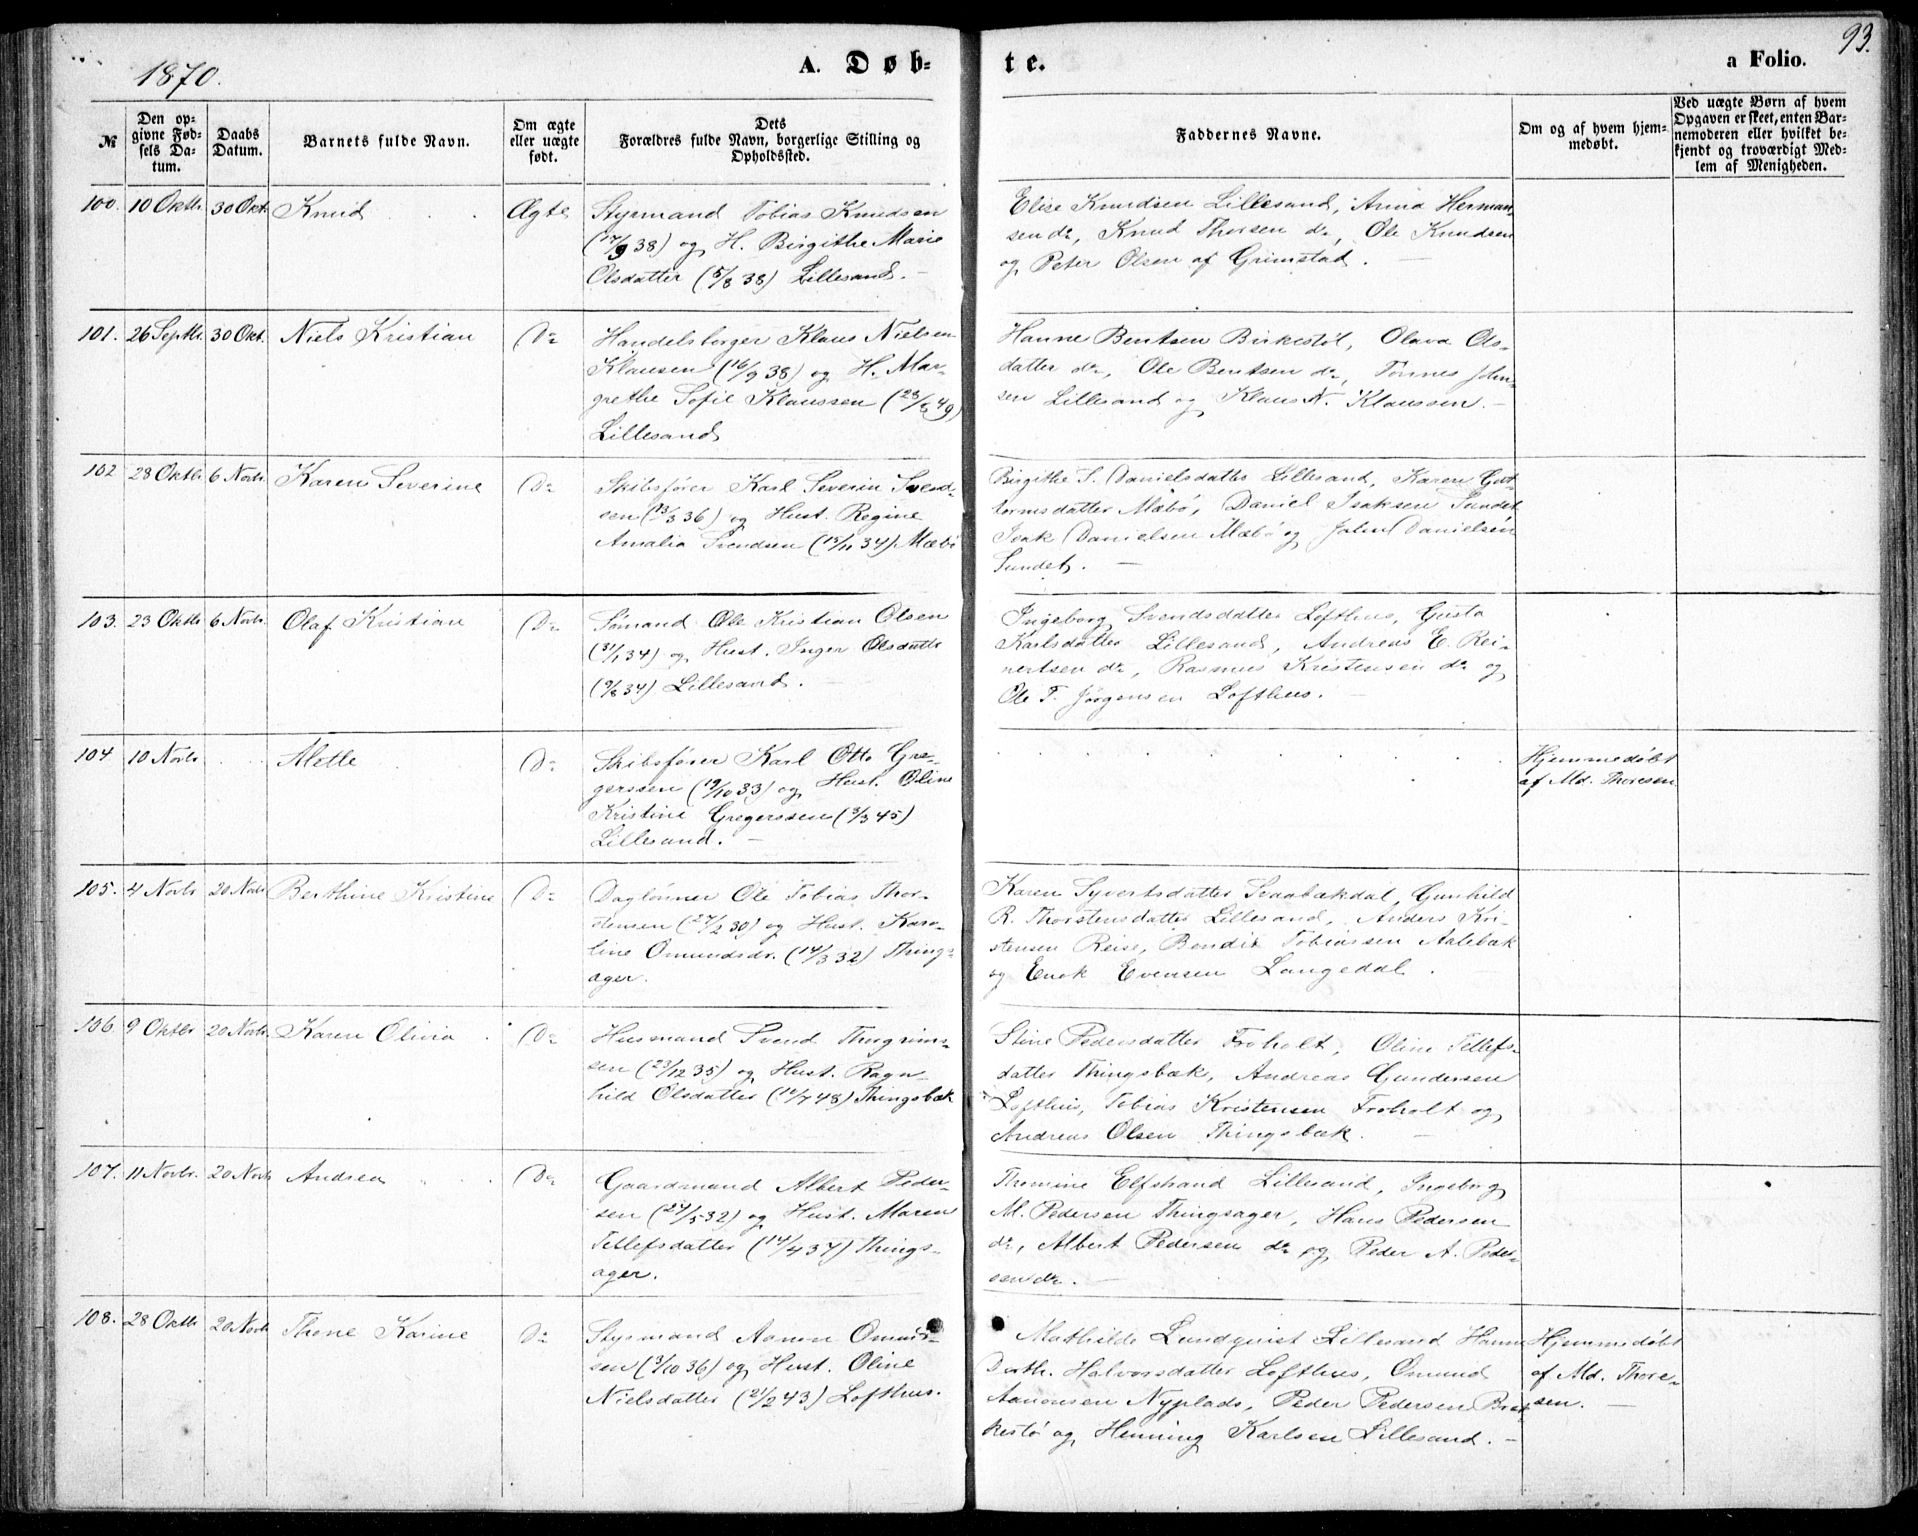 1870.
A. Døb-
te.
a Folio.
93.
№
Den op-
givne Fød-
sels Da-
tum.
Daabs
Datum.
Barnets fulde Navn.
Om ægte
eller uægte
født.
Dets
Forældres fulde Navn, borgerlige Stilling og
Opholdssted.
Faddernes Navne.
Om og af hvem hjem-
medøbt.
Ved uægte Børn af hvem
Opgaven er skeet, enten Bar-
nemoderen eller hvilket be-
kjendt og troværdigt Med-
lem af Menigheden.
100. 10 Oktbr. 30 Okt. Knud Ægte
Styrmand Tobias Knudsen
(17/9 38) og H. Birgithe Marie
Olsdatter (5/8 38) Lillesand. —
Elise Knudsen Lillesand, Anna Herman-
sen do, Knud Thorsen do, Ole Knudsen
og Peter Olsen af Grimstad. —
101. 26 Septbr. 30 Okt. Niels Kristian Do
Handelsborger Klaus Nielsen
Klausen (16/9 38) og H. Mar-
grethe Sofie Klaussen
Lillesand
Hanne Bentsen Birkestøl, Olava Ols-
datter do, Ole Bentsen do, Tønnes John-
sen Lillesand og Klaus N. Klaussen. —
102 28 Oktbr 6 Novbr. Karen Severine Do
Skibsfører Karl Severin Svend-
sen (13/3 36) og Hust. Regine
Amalia Svendsen (15/11 34) Mæbø
Birgithe S. Danielsdatter Lillesand, Karen Gut-
tormsdatter Mæbø, Daniel Isaksen Sundet
Isak Danielsen Mæbø og John Danielsen
Sundet. —
103. 23 Oktbr 6 Novbr. Olaf Kristian Do
Sømand Ole Kristian Olsen
(31/1 34) og Hust. Inger Olsdatter
(9/8 34) Lillesand. —
Ingeborg Svendsdatter Lofthus, Gusta
Karlsdatter Lillesand, Andreas E. Rei-
nertsen do, Rasmus Kristensen do og
Ole T. Jørgensen Lofthus. —
104 10 Novbr Mette Do
Skibsfører Karl Otto Gre-
gerssen (19/10 33) og Hust. Oline
Kristine Gregerssen (3/3 45)
Lillesand. —
Hjemmedøbt
af Md. Thoresen
105. 4 Novbr 20 Novbr Berthine Kristine Do
Daglønner Ole Tobias Thor-
stensen (27/2 30) og Hust. Karo-
line Omundsdr. (14/3 32) Things-
ager.
Karen Syvertsdatter Skaabækdal, Gunhild
R. Thorstensdatter Lillesand, Anders Kri-
stensen Reise, Bendik Tobiassen Aalebæk
og Enok Evensen Langedal.
106 9 Oktbr 20 Novbr. Karen Olivia Do
Husmand Svend Thorgrims-
sen (23/12 35) og Hust. Ragn-
hild Olsdatter Thingsbæk
Stine Pedersdatter Froholt, Oline Tellefs-
datter Thingsbæk, Andreas Gundersen
Lofthus, Tobias Kristensen Froholt og
Andreas Olsen Thingsbæk. —
107. 11 Novbr. 20 Novbr Andrea Do
Gaardmand Albert Peder-
sen (24/5 32) og Hust. Maren
Tellefsdatter (14/4 37) Things-
ager.
Thomine Elfstrand Lillesand, Ingeborg
M. Pedersen Thingsager, Hans Pedersen
do, Albert Pedersen do og Peder A. Peder-
sen do. —
108. 28 Oktbr 20 Novbr Thone Karine Do
Styrmand Aanon Omund-
sen (3/10 36) og Hust. Oline
Nielsdatter (21/2 43) Lofthus.
Mathilde Lundqvist Lillesand Hanne
Dorth. Halvorsdatter Lofthus, Omund
Aanonsen Nyplads, Peder Pedersen Bræk-
kestø og Henning Karlsen Lillesand. —
Hjemmedøbt
af Md. Thore-
sen. —